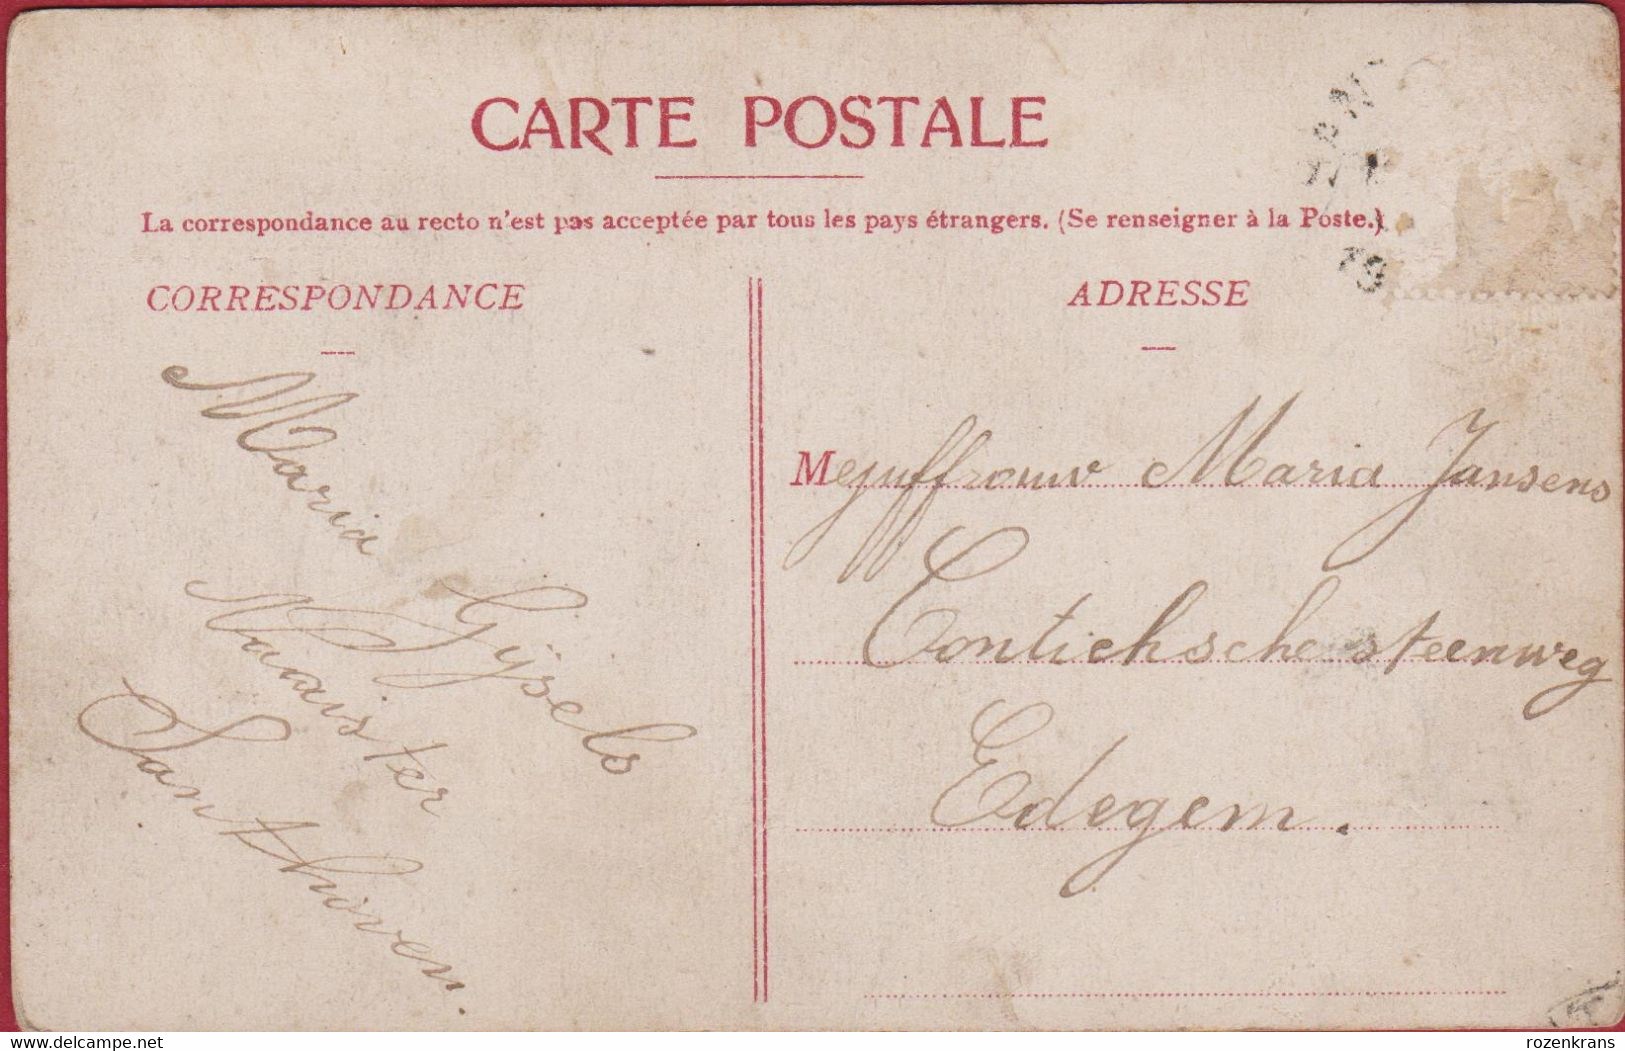 CARTE POSTALE
La correspondance au recto n'est pas acceptée par tous les pays étrangers. (Se renseigner à la Poste.)
CORRESPONDANCE
Maria Gÿsels
Naaister
Santhoven.
ADRESSE
Mejuffrouw Maria Jansens
Contichschesteenweg
Edegem.
rozenkrans